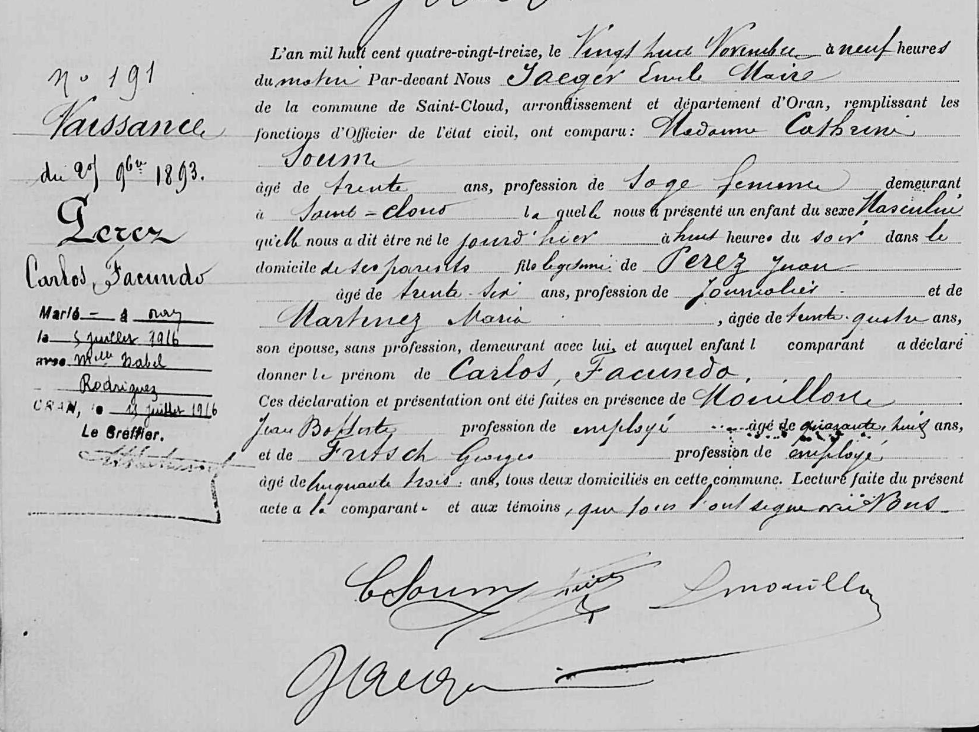 N° 191
Naissance
du 27 9bre 1893.
Perez
Carlos, Facundo
Marié - à Oran
le 5 juillet 1916
avec Mlle Isabel
Rodriguez
ORAN, le juillet 1916
Le Greffier.
L'an mil huit cent quatre-vingt-treize, le Vingt huit Novembre à neuf heures
du matin Par-devant Nous Jaeger Emile Maire
de la commune de Saint-Cloud, arrondissement et département d'Oran, remplissant les
fonctions d'Officier de l'état civil, ont comparu: Madame Cathrine
Soum
âgé de trente ans, profession de Sage femme demeurant
à Saint-Cloud la quelle nous a présenté un enfant du sexe Masculin
qu'elle nous a dit être né le jourd'hier à huit heures du soir dans le
domicile de ses parents fils légitime de Perez Juan
âgé de trente six ans, profession de Journalier et de
Martinez Maria, âgée de trente quatre ans,
son épouse, sans profession, demeurant avec lui, et auquel enfant l comparant a déclaré
donner le prénom de Carlos, Facundo.
Ces déclaration et présentation ont été faites en présence de Mouillon
Jean Baptiste profession de employé âgé de quarante huit ans,
et de Fritsch Georges profession de employé,
âgé de cinquante trois ans, tous deux domiciliés en cette commune. Lecture faite du présent
acte a la comparant et aux témoins, que tous l'ont signé Nous
C Soum Mouillon
Jaeger